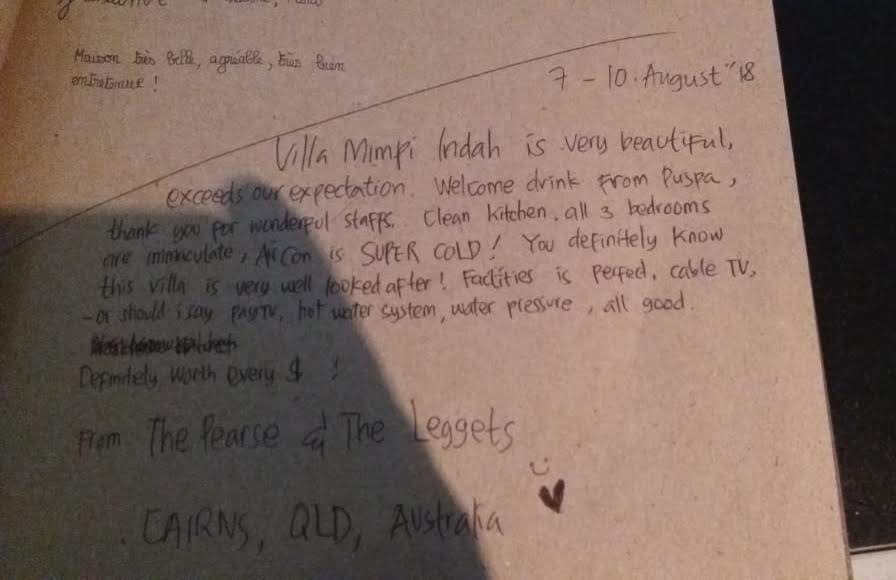 Maison très belle, agréable, très bien
entretenue !
7 - 10. August "18
Villa Mimpi Indah is very beautiful,
exceeds our expectation. Welcome drink from Puspa,
thank you for wonderful staffs. Clean kitchen, all 3 bedrooms
are immaculate, AirCon is SUPER COLD! You definitely know
this villa is very well looked after! Faclities is perfect, cable TV,
- or should i say payTV, hot water system, water pressure, all good.
Definitely worth every $ !
From The Pearse & The Leggets
CAIRNS, QLD, Australia